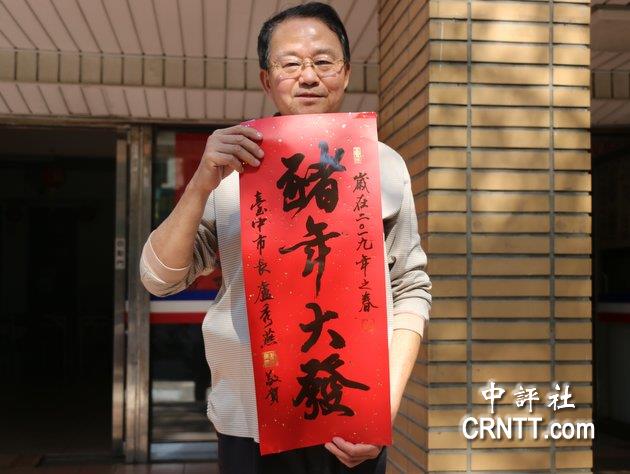 歲在二〇一九年之春
豬年大發
臺中市長盧秀燕
敬賀
中評社
CRNTT.com